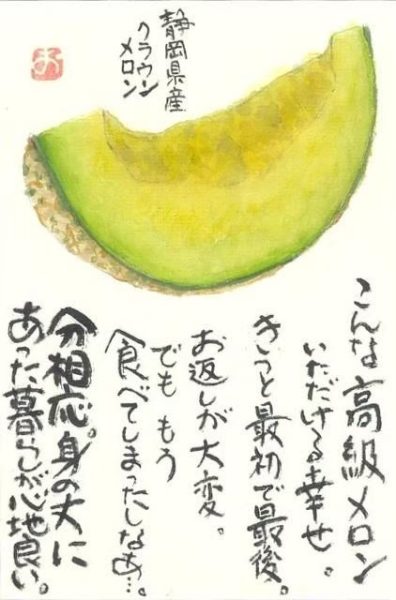 静岡県産
クラウン
メロン
こんな高級メロン
いただける幸せ。
きっと最初で最後。
お返しが大変。
でももう
食べてしまったしなぁ…。
分相応。身の丈に
あった暮らしが心地良い。